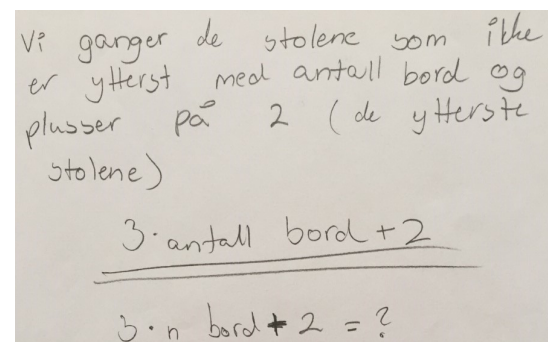 Vi ganger de stolene som ikke
er ytterst med antall bord og
plusser på 2 (de ytterste
stolene)
3 · antall bord + 2
3 · n bord + 2 = ?